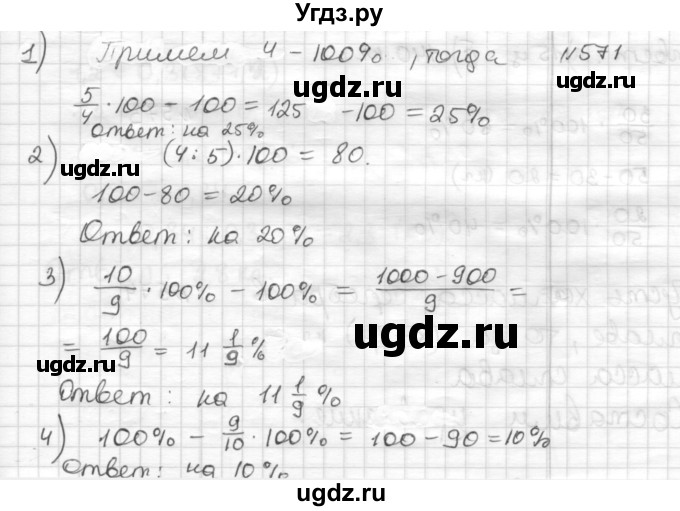 Угдз.ру
1) Примем 4 – 100%, тогда №571
5/4 · 100 – 100 = 125 – 100 = 25%
ugdz.ru
Ответ: на 25%
ugdz.ru
2) (4 : 5) · 100 = 80.
ugdz.ru
100 – 80 = 20%
Ответ: на 20%
ugdz.ru
3) 10/9 · 100% – 100% = (1000 – 900)/9 =
ugdz.ru
= 100/9 = 11 1/9 %
ugdz.ru
Ответ: на 11 1/9 %
ugdz.ru
4) 100% – 9/10 · 100% = 100 – 90 = 10%
Ответ: на 10%
ugdz.ru
ugdz.ru